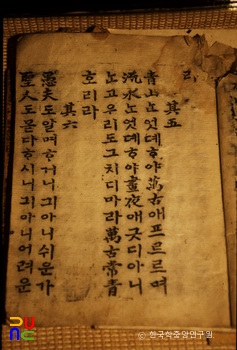 리
其五
青山노엇뎨ᄒᆞ야萬古애프르르며
流水노엇뎨ᄒᆞ야晝夜애긋디아니
노고우리도그치디마라萬古常青
호리라
其六
愚夫도알며ᄒᆞ거니긔아니쉬운가
聖人도몯다ᄒᆞ시니긔아니어려운
ⓒ 한국학중앙연구원